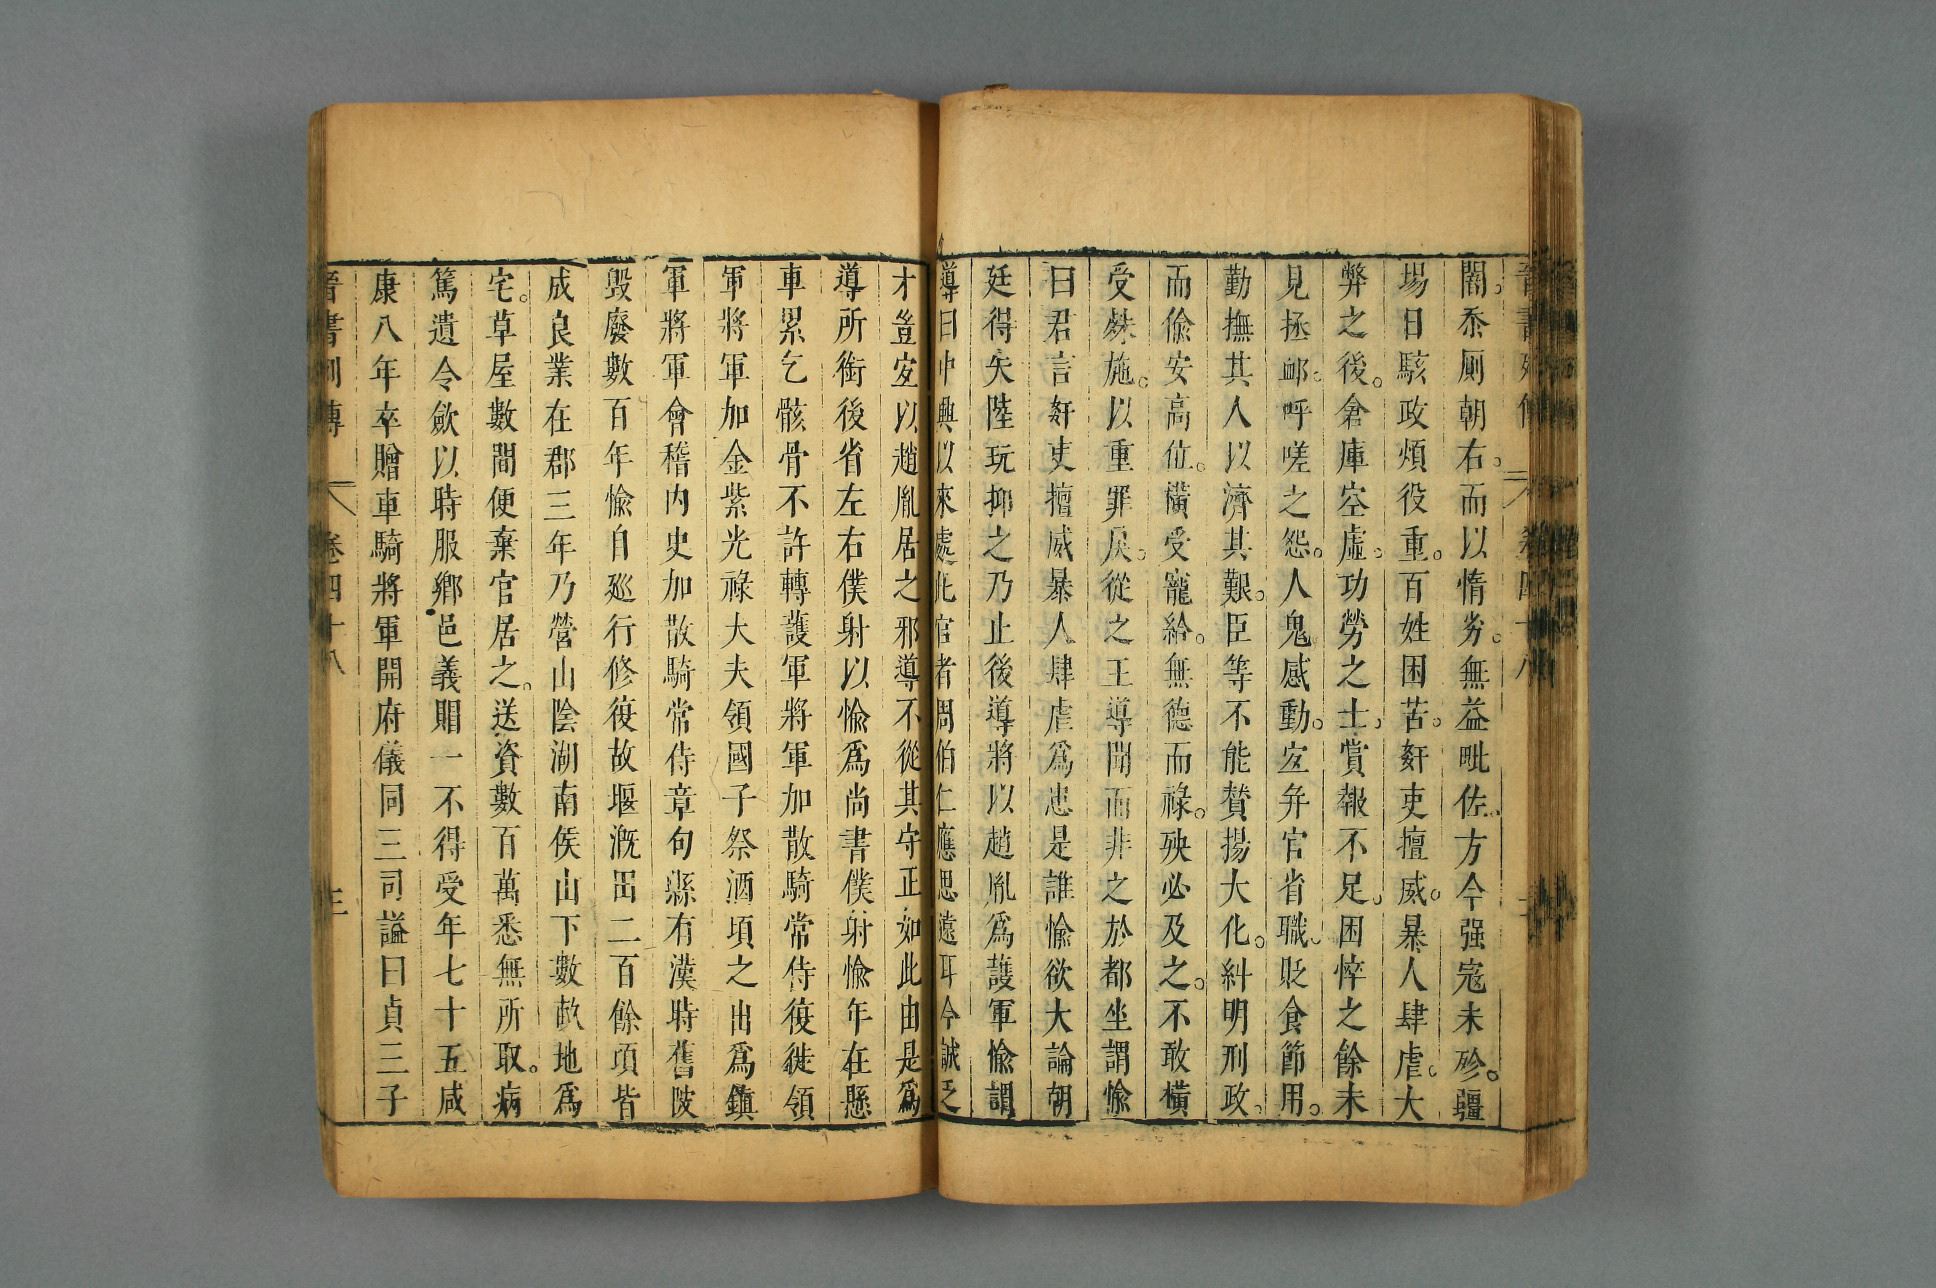 闇。忝厠朝右。而以惰劣。無益毗佐。方今强寇未殄。疆
場日駭政煩役重。百姓困苦。姧吏擅威。暴人肆虐。大
弊之後。倉庫空虛。功勞之士。賞報不足。困悴之餘未
見拯卹。呼嗟之怨。人鬼感動。宜幷官省職。貶食節用。
勤撫其人以濟其艱。臣等不能賛揚大化。糾明刑政。
而偸安高位。橫受寵給。無德而祿。殃必及之。不敢橫
受殊施。以重罪戾。從之王導聞而非之於都坐謂愉
曰君言姧吏擅威暴人肆虐爲患是誰愉欲大論朝
廷得失陸玩抑之乃止後導將以趙胤爲護軍愉謂
導曰中興以來處此官者周伯仁應思遠耳今誠乏
才豈宜以趙胤居之邪導不從其守正如此由是爲
導所銜後省左右僕射以愉爲尚書僕射愉年在懸
車累乞骸骨不許轉護軍將軍加散騎常侍復徙領
軍將軍加金紫光祿大夫領國子祭酒頃之出爲鎮
軍將軍會稽內史加散騎常侍章句縣有漢時舊陂
毀廢數百年愉自廵行修復故堰漑畓二百餘頃皆
成良業在郡三年乃營山陰湖南侯山下數畝地爲
宅。草屋數間便棄官居之。送資數百萬悉無所取。病
篤遺令斂以時服鄉邑義賵一不得受年七十五咸
康八年卒贈車騎將軍開府儀同三司謚曰貞三子
晋書列傳 卷四十八 三